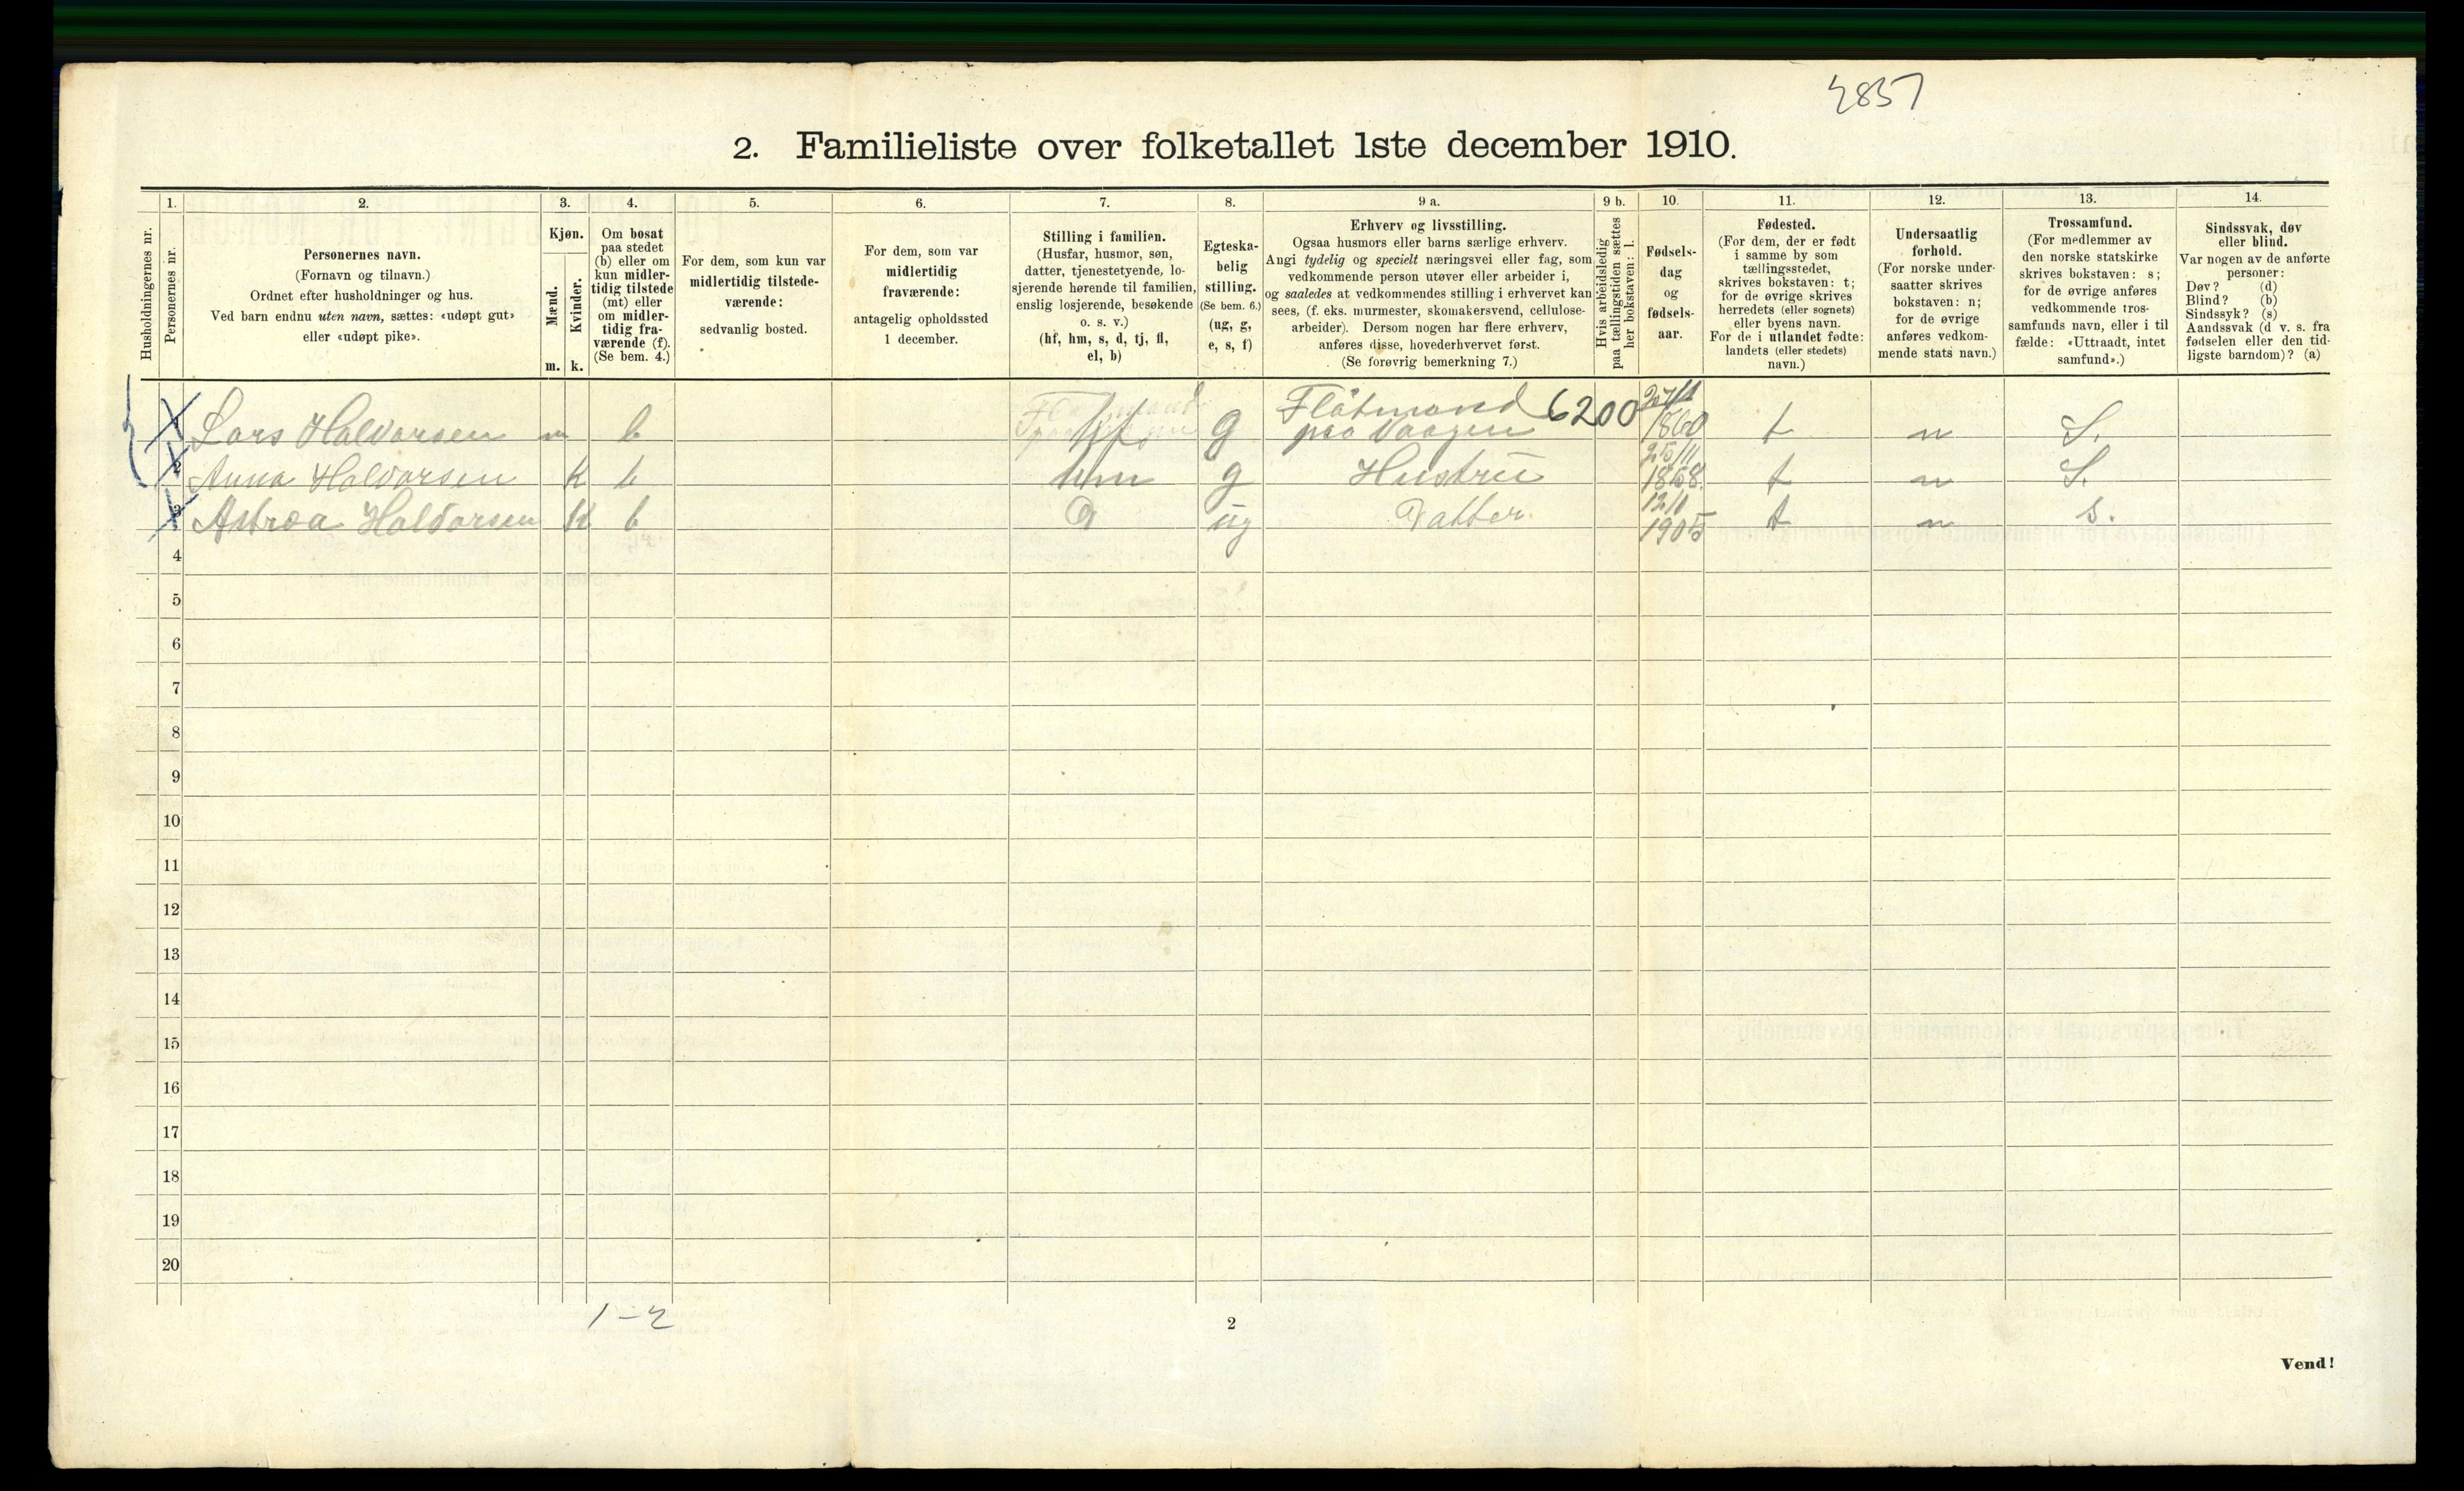 2857
2. Familieliste over folketallet 1ste december 1910.
Husholdningernes nr.
1.
Personernes nr.
2.
Personernes navn.
(Fornavn og tilnavn.)
Ordnet efter husholdninger og hus.
Ved barn endnu uten navn, sættes: «udøpt gut»
eller «udøpt pike».
3.
Kjøn.
Mænd.
Kvinder.
m. k.
4.
Om bosat
paa stedet
(b) eller om
kun midler-
tidig tilstede
(mt) eller
om midler-
tidig fra-
værende (f).
(Se bem. 4.)
5.
For dem, som kun var
midlertidig tilstede-
værende:
sedvanlig bosted.
6.
For dem, som var
midlertidig
fraværende:
antagelig opholdssted
1 december.
7.
Stilling i familien.
(Husfar, husmor, søn,
datter, tjenestetyende, lo-
sjerende hørende til familien,
enslig losjerende, besøkende
o. s. v.)
(hf, hm, s, d, tj, fl,
el, b)
8.
Egteska-
belig
stilling.
(Se bem. 6.)
(ug, g,
e, s, f)
9 a.
Erhverv og livsstilling.
Ogsaa husmors eller barns særlige erhverv.
Angi tydelig og specielt næringsvei eller fag, som
vedkommende person utøver eller arbeider i,
og saaledes at vedkommendes stilling i erhvervet kan
sees, (f. eks. murmester, skomakersvend, cellulose-
arbeider). Dersom nogen har flere erhverv,
anføres disse, hovederhvervet først.
(Se forøvrig bemerkning 7.)
9 b.
Hvis arbeidsledig
paa tællingstiden sættes
her bokstaven: l.
10.
Fødsels-
dag
og
fødsels-
aar.
11.
Fødested.
(For dem, der er født
i samme by som
tællingsstedet,
skrives bokstaven: t;
for de øvrige skrives
herredets (eller sognets)
eller byens navn.
For de i utlandet fødte:
landets (eller stedets)
navn.)
12.
Undersaatlig
forhold.
(For norske under-
saatter skrives
bokstaven: n;
for de øvrige
anføres vedkom-
mende stats navn.)
13.
Trossamfund.
(For medlemmer av
den norske statskirke
skrives bokstaven: s;
for de øvrige anføres
vedkommende tros-
samfunds navn, eller i til
fælde: «Uttraadt, intet
samfund».)
14.
Sindssvak, døv
eller blind.
Var nogen av de anførte
personer:
Døv? (d)
Blind? (b)
Sindssyk? (s)
Aandssvak (d v. s. fra
fødselen eller den tid-
ligste barndom)? (a)
1 Lars Halvorsen m b hf g Flåtmand paa Vaagen 6200 1860 t n S.
2 Anna Halvorsen K b hm g Hustru 25/11 1868. t n S.
3 Astrea Halvorsen K b D ug Datter. 1905 t n s.
4
5
6
7
8
9
10
11
12
13
14
15
16
17
18
19
20
1 – 2
2
Vend!